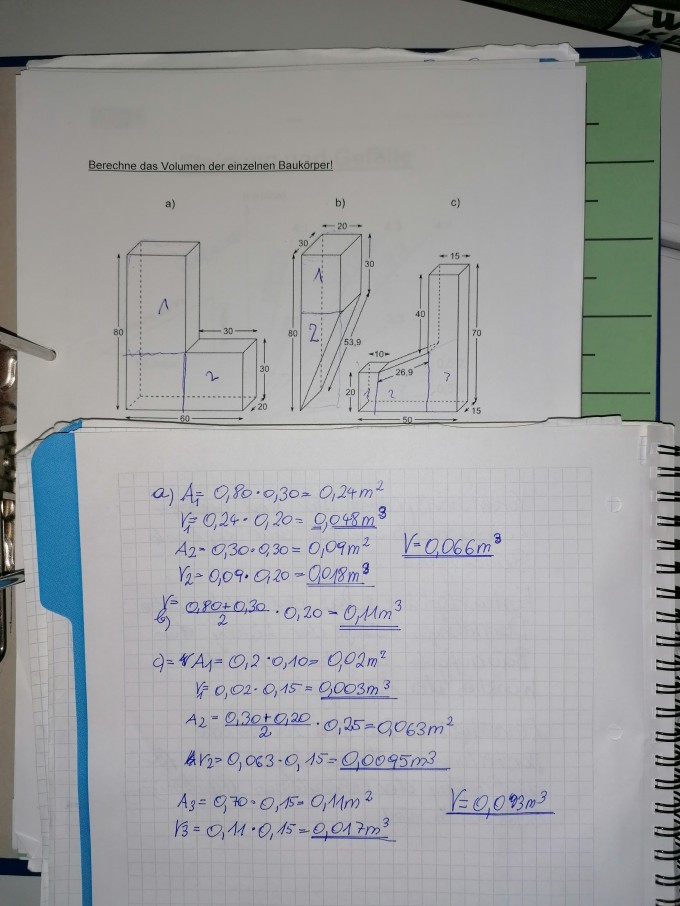 Berechne das Volumen der einzelnen Baukörper!
a) b) c)
20
30
30
15
1
1
80
30
80
2
53,9
40
70
2
30
20
60
10
26,9
20
1 2
50
15
a) A1= 0,80·0,30= 0,24m²
V1= 0,24·0,20= 0,048m³
A2= 0,30·0,30= 0,09m² V=0,066m³
V2= 0,09·0,20= 0,018m³
b) V= (0,80+0,30)/2 · 0,20= 0,11m³
c)= A1= 0,2·0,10= 0,02m²
V1= 0,02·0,15= 0,003m³
A2= (0,30+0,20)/2 · 0,25=0,063m²
V2= 0,063·0,15= 0,0095m³
A3= 0,70·0,15= 0,11m²
V3= 0,11·0,15= 0,017m³